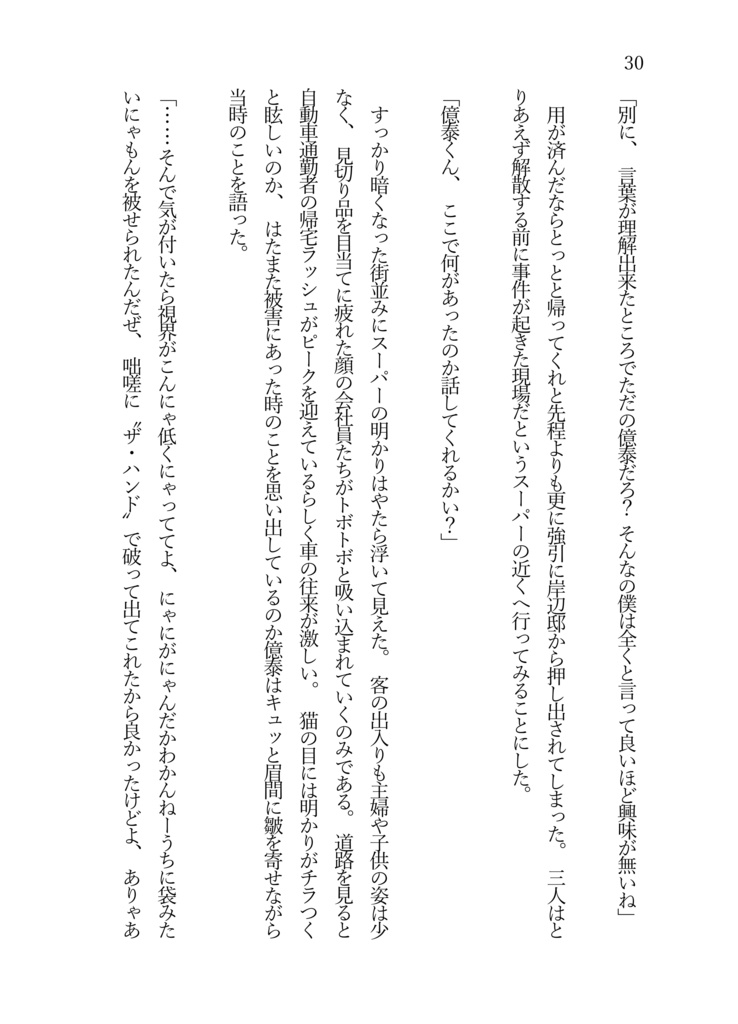 30
「別に、言葉が理解出来たところでただの億泰だろ？そんなの僕は全くと言って良いほど興味が無いね」
用が済んだならとっとと帰ってくれと先程よりも更に強引に岸辺邸から押し出されてしまった。三人はと
りあえず解散する前に事件が起きた現場だというスーパーの近くへ行ってみることにした。
「億泰くん、ここで何があったのか話してくれるかい？」
すっかり暗くなった街並みにスーパーの明かりはやたら浮いて見えた。客の出入りも主婦や子供の姿は少
なく、見切り品を目当てに疲れた顔の会社員たちがトボトボと吸い込まれていくのみである。道路を見ると
自動車通勤者の帰宅ラッシュがピークを迎えているらしく車の往来が激しい。猫の目には明かりがチラつく
と眩しいのか、はたまた被害にあった時のことを思い出しているのか億泰はキュッと眉間に皺を寄せながら
当時のことを語った。
「……そんで気が付いたら視界がこんにゃ低くにゃっててよ、にゃにがにゃんだかわかんねーうちに袋みた
いにゃもんを被せられたんだぜ、咄嗟に〝ザ・ハンド〟で破って出てこれたから良かったけどよ、ありゃあ